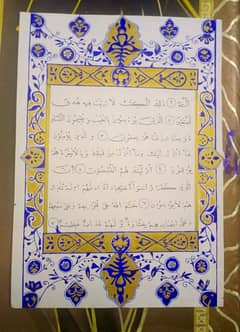 الم ① ذلك الكتب لا ريب فيه هدى
للمتقين ② الذين يؤمنون بالغيب و يقيمون الصلوة
و مما رزقنهم ينفقون ③ و الذين يؤمنون
بما انزل اليك وما انزل من قبلك وبالاخرة هم
يوقنون ④ اولئك هم المفلحون ⑤ ان
الذين كفروا سواء عليهم ءانذرتهم ام لم تنذرهم
لا يؤمنون ⑥ ختم الله على قلوبهم وعلى سمعهم
وعلى ابصارهم غشاوة ولهم عذاب عظيم ⑦